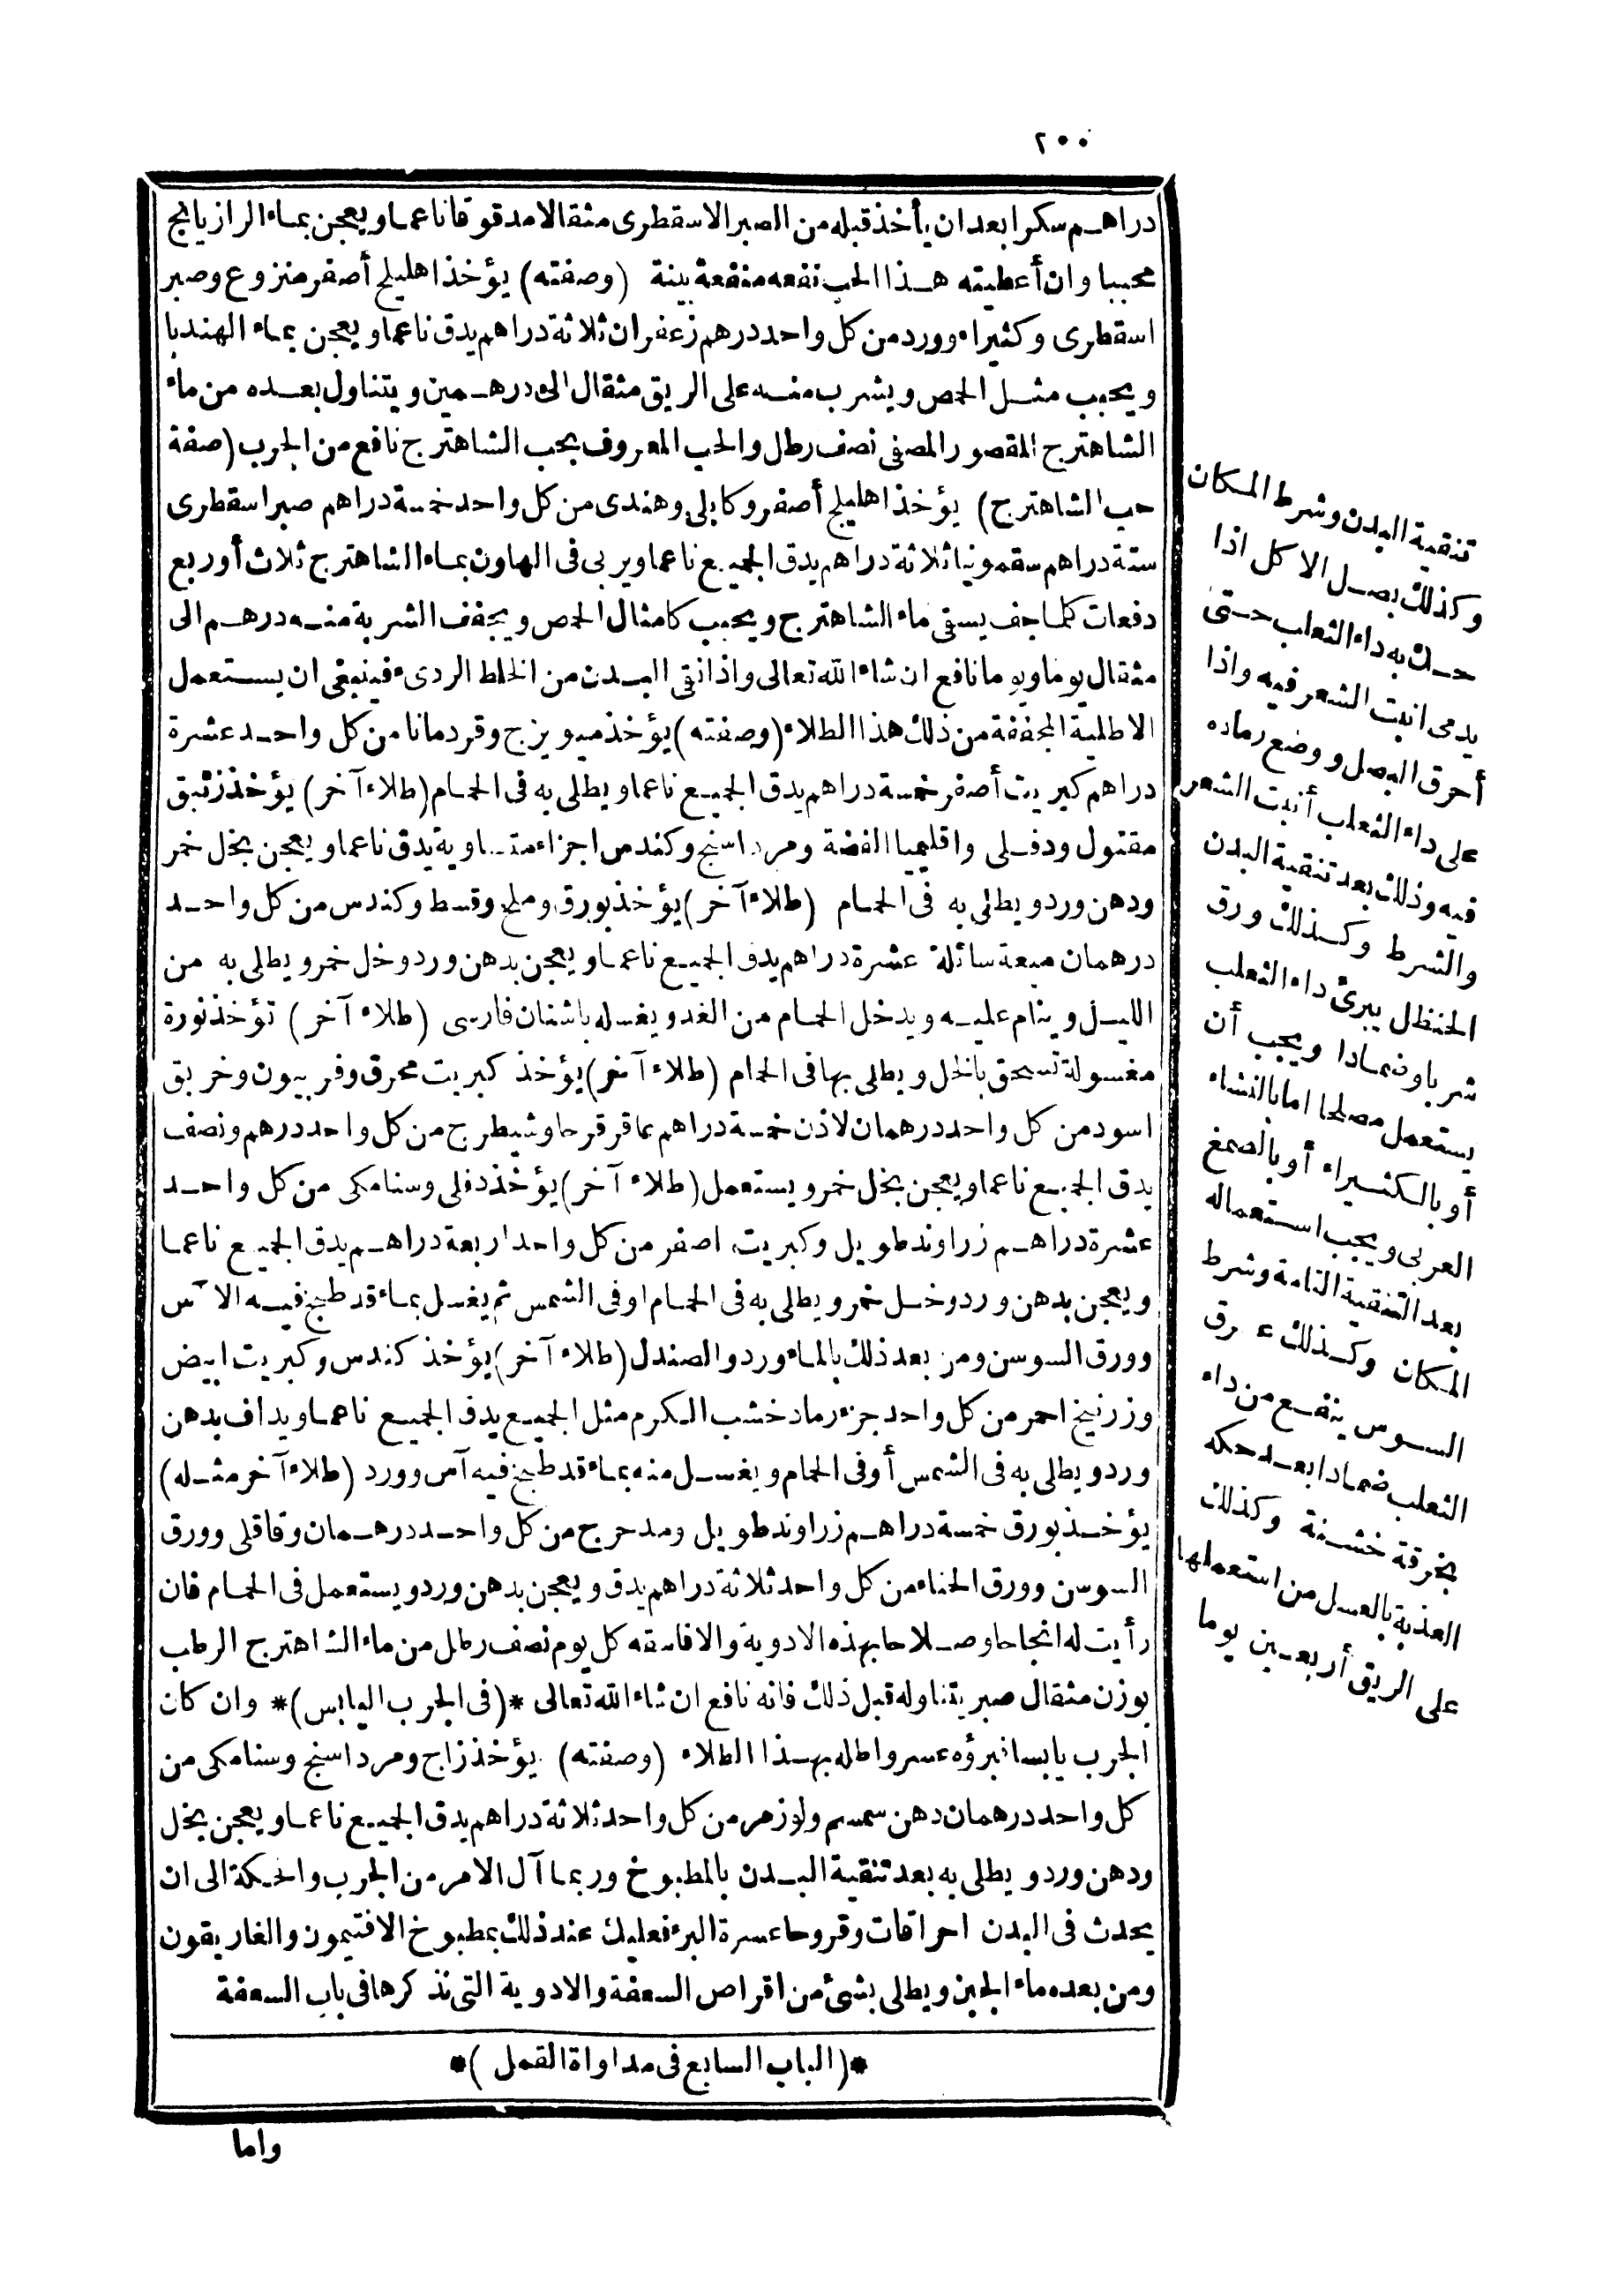 ٢٠٠
دراهم سكرا بعد ان يأخذ قبله من الصبر الاسقطرى مثقالا مدقوقا ناعما ويعجن بماء الرازيانج
محببا وان أعطيته هذا الحب نفعه منفعة بينة (وصفته) يؤخذ اهليلج أصفر منزوع وصبر
اسقطرى وكثيراء وورد من كل واحد درهم زعفران ثلاثة دراهم يدق ناعما ويعجن بماء الهندبا
ويحبب مثل الحمص ويشرب منه على الريق مثقال الى درهمين ويتناول بعده من ماء
الشاهترج المقصور المصفى نصف رطل والحب المعروف بحب الشاهترج نافع من الجرب (صفة
حب الشاهترج) يؤخذ اهليلج أصفر وكابلى وهندى من كل واحد خمسة دراهم صبر اسقطرى
ستة دراهم سقمونيا ثلاثة دراهم يدق الجميع ناعما ويربى فى الهاون بماء الشاهترج ثلاث أو ربع
دفعات كلما جف يسقى ماء الشاهترج ويحبب كامثال الحمص ويجفف الشربة منه درهم الى
مثقال يوما ويوما نافع ان شاء الله تعالى واذا نقى البدن من الخلط الردىء فينبغى ان يستعمل
الاطلية المجففة من ذلك هذا الطلاء (وصفته) يؤخذ ميويزج وقردمانا من كل واحد عشرة
دراهم كبريت أصفر خمسة دراهم يدق الجميع ناعما ويطلى به فى الحمام (طلاء آخر) يؤخذ زئبق
مقتول ودفلى واقليميا الفضة ومرداسنج وكندس اجزاء متساوية يدق ناعما ويعجن بخل خمر
ودهن ورد ويطلى به فى الحمام (طلاء آخر) يؤخذ بورق وملح وقسط وكندس من كل واحد
درهمان ميعة سائلة عشرة دراهم يدق الجميع ناعما ويعجن بدهن ورد وخل خمر ويطلى به من
الليل وينام عليه ويدخل الحمام من الغد ويغسله باشنان فارسى (طلاء آخر) تؤخذ نورة
مغسولة تسحق بالخل ويطلى بها فى الحمام (طلاء آخر) يؤخذ كبريت محرق وفربيون وخربق
اسود من كل واحد درهمان لاذن خمسة دراهم عاقرقرحا وشيطرج من كل واحد درهم ونصف
يدق الجميع ناعما ويعجن بخل خمر ويستعمل (طلاء آخر) يؤخذ دفلى وسنامكى من كل واحد
عشرة دراهم زراوند طويل وكبريت اصفر من كل واحد اربعة دراهم يدق الجميع ناعما
ويعجن بدهن ورد وخل خمر ويطلى به فى الحمام او فى الشمس ثم يغسل بماء قد طبخ فيه الآس
وورق السوسن ومن بعد ذلك بالماء ورد والصندل (طلاء آخر) يؤخذ كندس وكبريت ابيض
وزرنيخ احمر من كل واحد جزء رماد خشب الكرم مثل الجميع يدق الجميع ناعما ويداف بدهن
ورد ويطلى به فى الشمس أو فى الحمام ويغسل منه بماء قد طبخ فيه آس وورد (طلاء آخر مثله)
يؤخذ بورق خمسة دراهم زراوند طويل ومدحرج من كل واحد درهمان وقاقلى وورق
السوسن وورق الحناء من كل واحد ثلاثة دراهم يدق ويعجن بدهن ورد ويستعمل فى الحمام فان
رأيت له انجاحا وصلاحا بهذه الادوية والا فاسقه كل يوم نصف رطل من ماء الشاهترج الرطب
بوزن مثقال صبر يتناوله قبل ذلك فانه نافع ان شاء الله تعالى *(فى الجرب اليابس)* وان كان
الجرب يابسا فبرؤه عسر واطله بهذا الطلاء (وصفته) يؤخذ زاج ومرداسنج وسنامكى من
كل واحد درهمان دهن سمسم ولوز مر من كل واحد ثلاثة دراهم يدق الجميع ناعما ويعجن بخل
ودهن ورد ويطلى به بعد تنقية البدن بالمطبوخ وربما آل الامر من الجرب والحكة الى ان
يحدث فى البدن احراقات وقروحا عسرة البرء فعليك عند ذلك بمطبوخ الافتيمون والغاريقون
ومن بعده ماء الجبن ويطلى بشئ من اقراص السعفة والادوية التى نذكرها فى باب السعفة
*(الباب السابع فى مداواة القمل)*
واما
تنقية البدن وشرط المكان
وكذلك بصل الاكل اذا
حك به داء الثعلب حتى
يدمى انبت الشعر فيه واذا
أحرق البصل ووضع رماده
على داء الثعلب أنبت الشعر
فيه وذلك بعد تنقية البدن
والشرط وكذلك ورق
الحنظل يبرئ داء الثعلب
شربا وضمادا ويجب أن
يستعمل مصلحا اما بالنشاء
أو بالكثيراء أو بالصمغ
العربى ويجب استعماله
بعد التنقية التامة وشرط
المكان وكذلك عرق
السوس ينفع من داء
الثعلب ضمادا بعد حكه
بخرقة خشنة وكذلك
العذبة بالعسل من استعملها
على الريق أربعين يوما